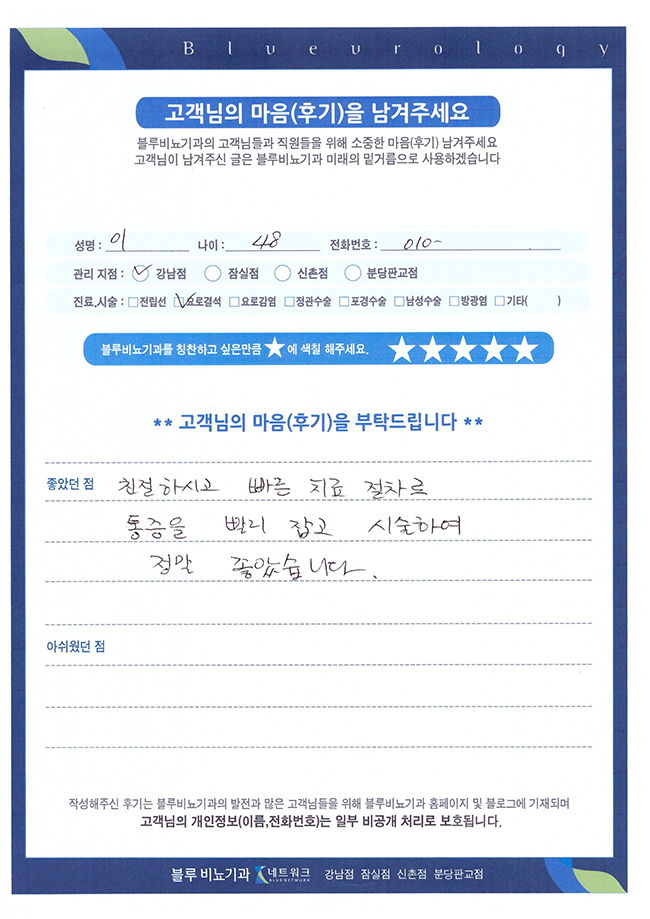 Blueurology
고객님의 마음(후기)을 남겨주세요
블루비뇨기과의 고객님들과 직원들을 위해 소중한 마음(후기) 남겨주세요
고객님이 남겨주신 글은 블루비뇨기과 미래의 밑거름으로 사용하겠습니다
성명 : 이 나이 : 48 전화번호 : 010-
관리 지점 : 강남점 잠실점 신촌점 분당판교점
진료,시술 : 전립선 요로결석 요로감염 정관수술 포경수술 남성수술 방광염 기타( )
블루비뇨기과를 칭찬하고 싶은만큼 ★에 색칠 해주세요. ★★★★★
** 고객님의 마음(후기)을 부탁드립니다 **
좋았던 점 친절하시고 빠른 치료 절차로
통증을 빨리 잡고 시술하여
정말 좋았습니다.
아쉬웠던 점
작성해주신 후기는 블루비뇨기과의 발전과 많은 고객님들을 위해 블루비뇨기과 홈페이지 및 블로그에 기재되며
고객님의 개인정보(이름,전화번호)는 일부 비공개 처리로 보호됩니다.
블루 비뇨기과 네트워크 BLUENETWORK 강남점 잠실점 신촌점 분당판교점